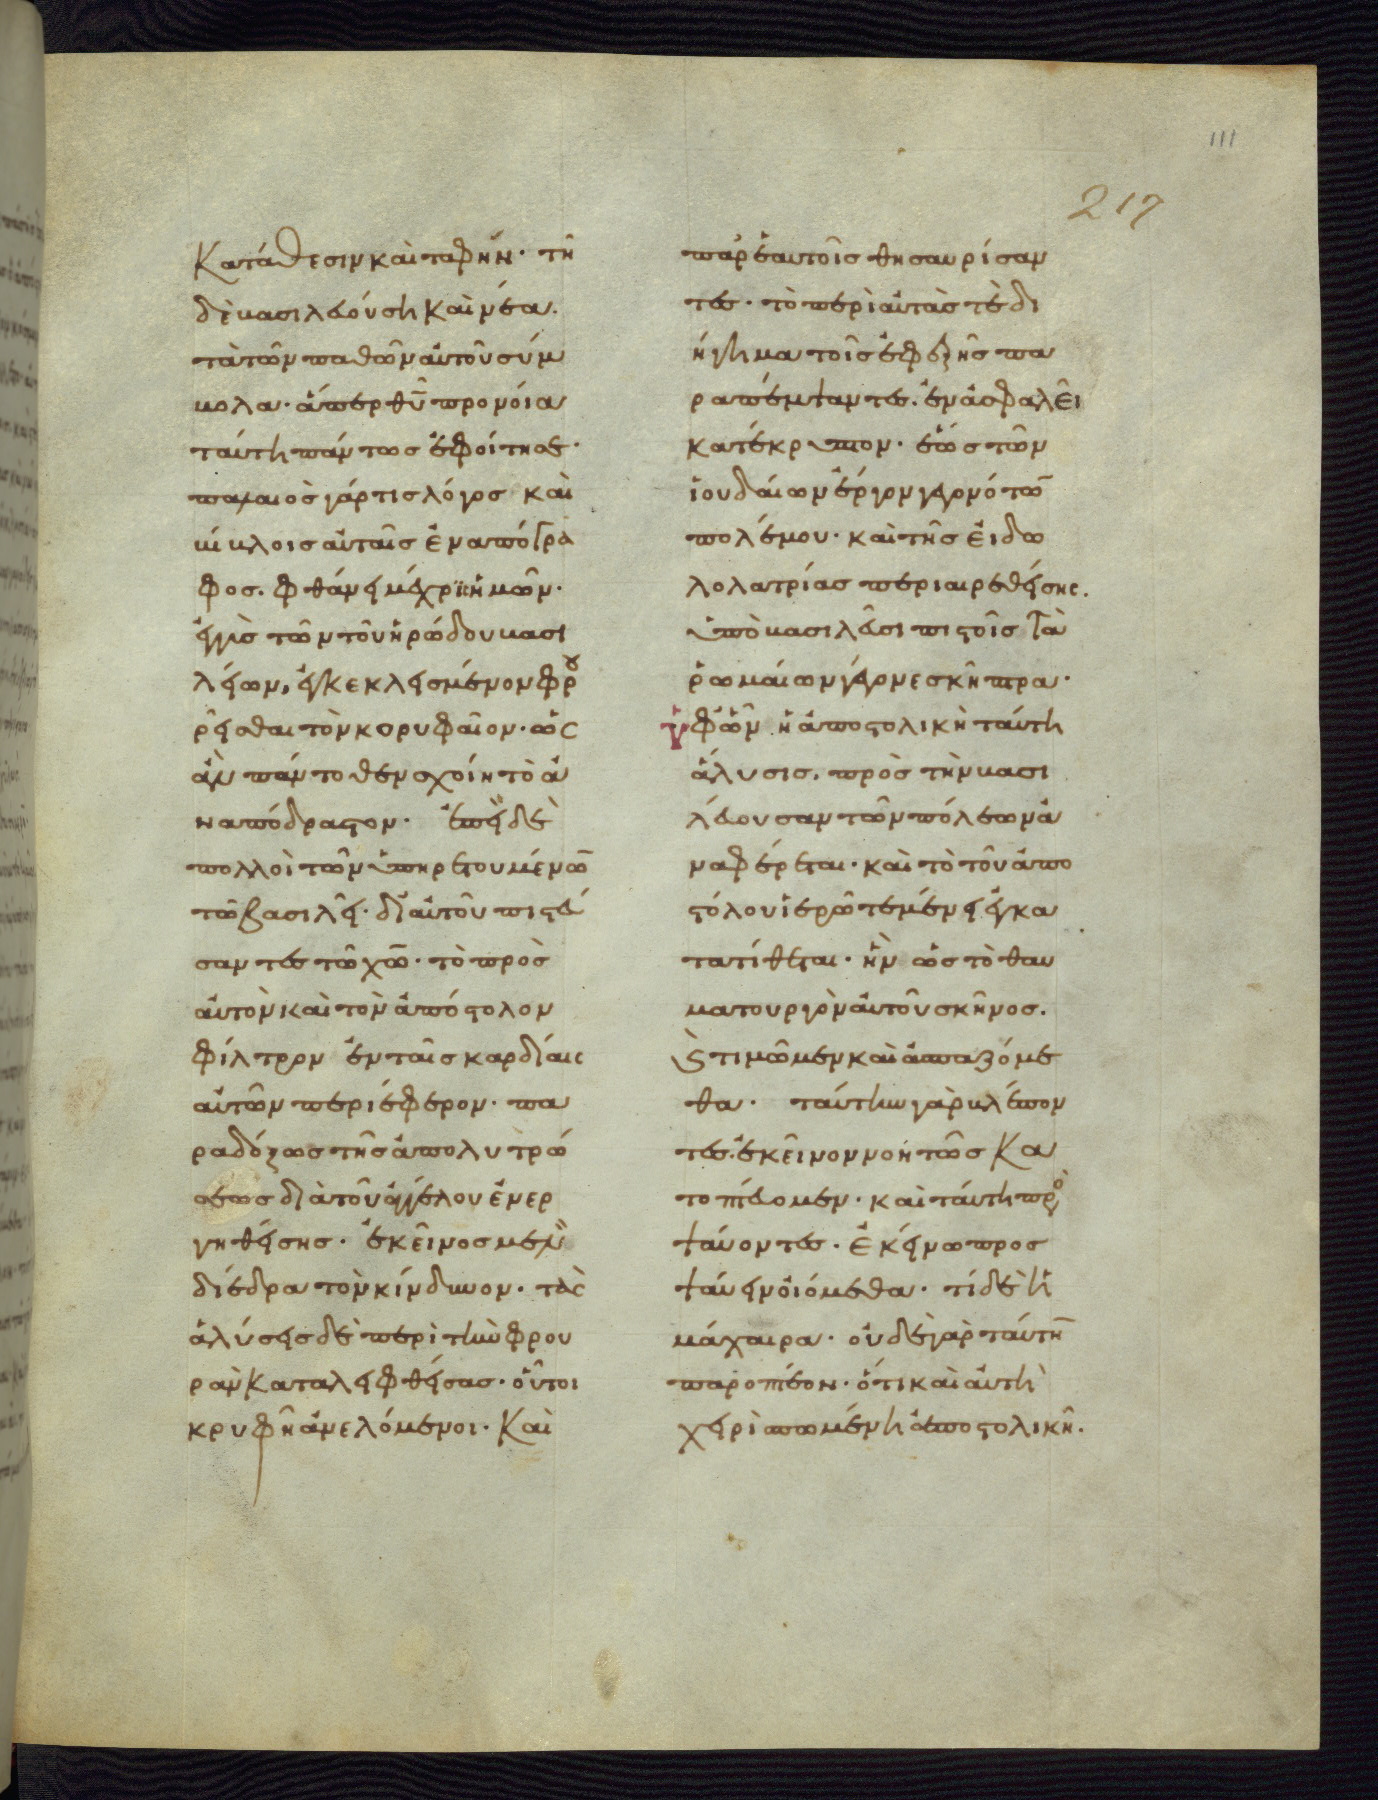 111
217
κατάθεσιν καὶ ταφὴν· τῆ
δὲ βασιλευούση καὶ νέα.
τὰ τῶν παθῶν αὐτοῦ σύμ
βολα· ἅπερ θῦ προνοία
ταύτη πάντως ἐφοίτησε·
παλαιὸς γάρ τις λόγος καὶ
βίβλοις αὐταῖς ἐναπόγρα
φος. φθάνει μέχρις ἡμῶν·
ἐγγὺς τῶν τοῦ ἡρώδου βασι
λείων, ἐγκεκλεισμένον φρου
ρεῖσθαι τὸν κορυφαῖον· ὡς
ἂν πάντοθεν σχοίη τὸ ἀ
ναπόδραστον· ἐπεὶ δὲ
πολλοὶ τῶν ὑπηρετουμένων
τῶ βασιλεῖ· δι αὐτοῦ πιστεύ
σαντες τῶ χω· τὸ πρὸς
αὐτὸν καὶ τὸν ἀπόστολον
φίλτρον ἐν ταῖς καρδίαις
αὐτῶν περιέφερον· πα
ραδόξως τῆς ἀπολυτρώ
σεως διὰ τοῦ ἀγγέλου ἐνερ
γηθείσης· ἐκεῖνος μὲν
διέδρα τὸν κίνδυνον· τὰς
ἁλύσεις δὲ περὶ τὴν φρου
ρὰν καταλειφθείσας· οὗτοι
κρυφῆ ἀνελόμενοι· καὶ
παρ ἑαυτοῖς θησαυρίσαν
τες· τὸ περὶ αὐτὰς τὲ δι
ήγημα τοῖς ἐφεξῆς πα
ραπέμψαντες. ἐν ἀσφαλεῖ
κατέκρυπτον· ἕως τῶν
ἰουδαίων ἔργον γεγονότων
πολέμου· καὶ τῆς εἰδω
λολατρίας περιαιρεθείσης.
ὑπὸ βασιλεῦσι πιστοῖς τὰ
ῥωμαίων γέγονε σκῆπτρα·
ὑφ ὧν ἡ ἀποστολικὴ ταύτη
ἅλυσις. πρὸς τὴν βασι
λεύουσαν τῶν πόλεων ἀ
ναφέρεται· καὶ τὸ τοῦ ἀπο
στόλου ἱερῶ τεμένει ἐγκα
τατίθεται· ἣν ὡς τὸ θαυ
ματουργὸν αὐτοῦ σκῆνος.
ς τιμῶμεν καὶ ἀσπαζόμε
θα· ταύτην γὰρ βλέπον
τες. ἐκεῖνον νοητῶς κα
τοπτεύομεν· καὶ ταύτη προ
ψαύοντες· ἐκείνω προς
ψαύειν οἰόμεθα· τί δὲ ἡ
μάχαιρα· οὐδὲ γὰρ ταύτην
παροπτέον· ὅτι καὶ αὐτὴ
χειρὶ σπωμένη ἀποστολικῆ.